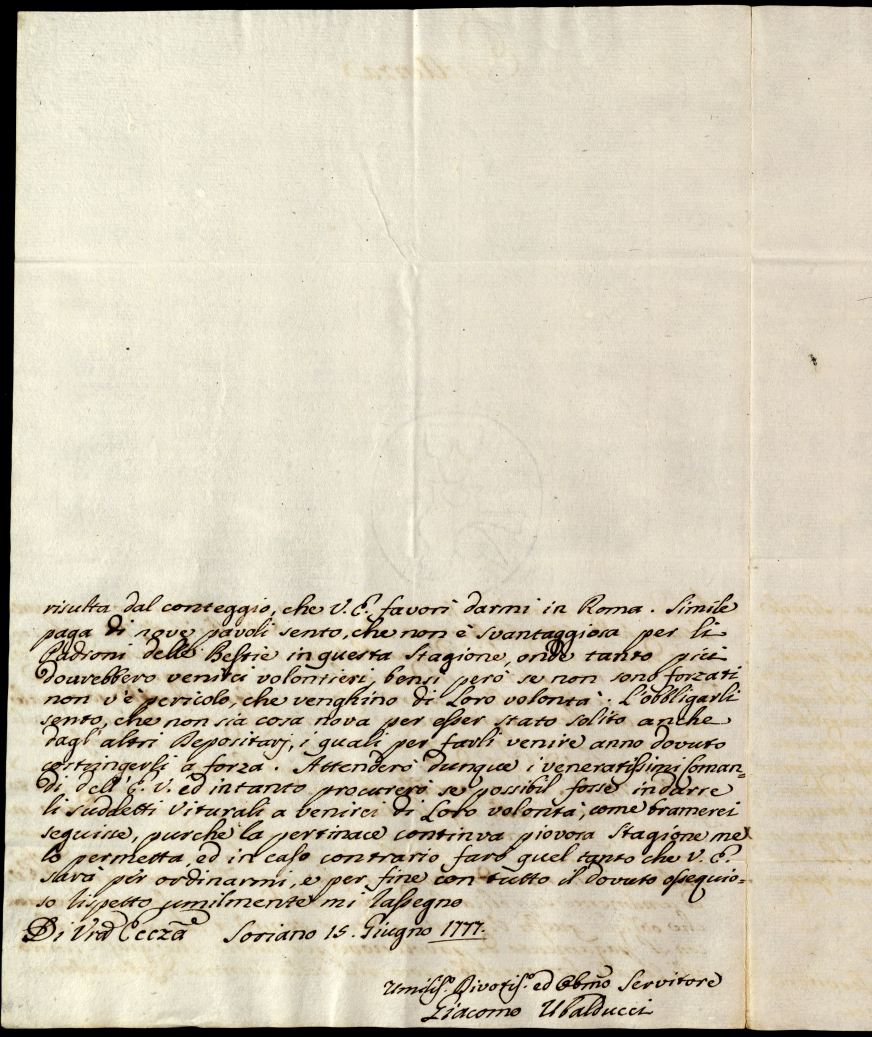 risulta dal conteggio, che V. E. favorì darmi in Roma. Simile
paga di nove pavoli sento, che non è svantaggiosa per li
Padroni delle Bestie in questa Stagione, onde tanto più
dovrebbero venirci volontieri, bensì però se non sono forzati
non v'è pericolo, che venghino di Loro volontà. L'obbligarli
sento, che non sia cosa nova per esser stato solito anche
dagl'altri Depositarj, i quali per farli venire anno dovuto
costringerli a forza. Attenderò dunque i veneratissimi Coman=
di dell'E. V. ed intanto procurerò se possibil fosse indurre
li suddetti Vitturali a venirci di Loro volontà, come bramerei
seguisse, purche la pertinace continva piovosa Stagione me
lo permetta, ed in caso contrario farò quel tanto che V. E.
sarà per ordinarmi, e per fine con tutto il dovuto ossequio=
so rispetto umilmente mi rassegno
Di Vrã Ecczã Soriano 15. Giugno 1777.
Umilis.º Divotis.º ed Obmõ Servitore
Giacomo Ubalducci